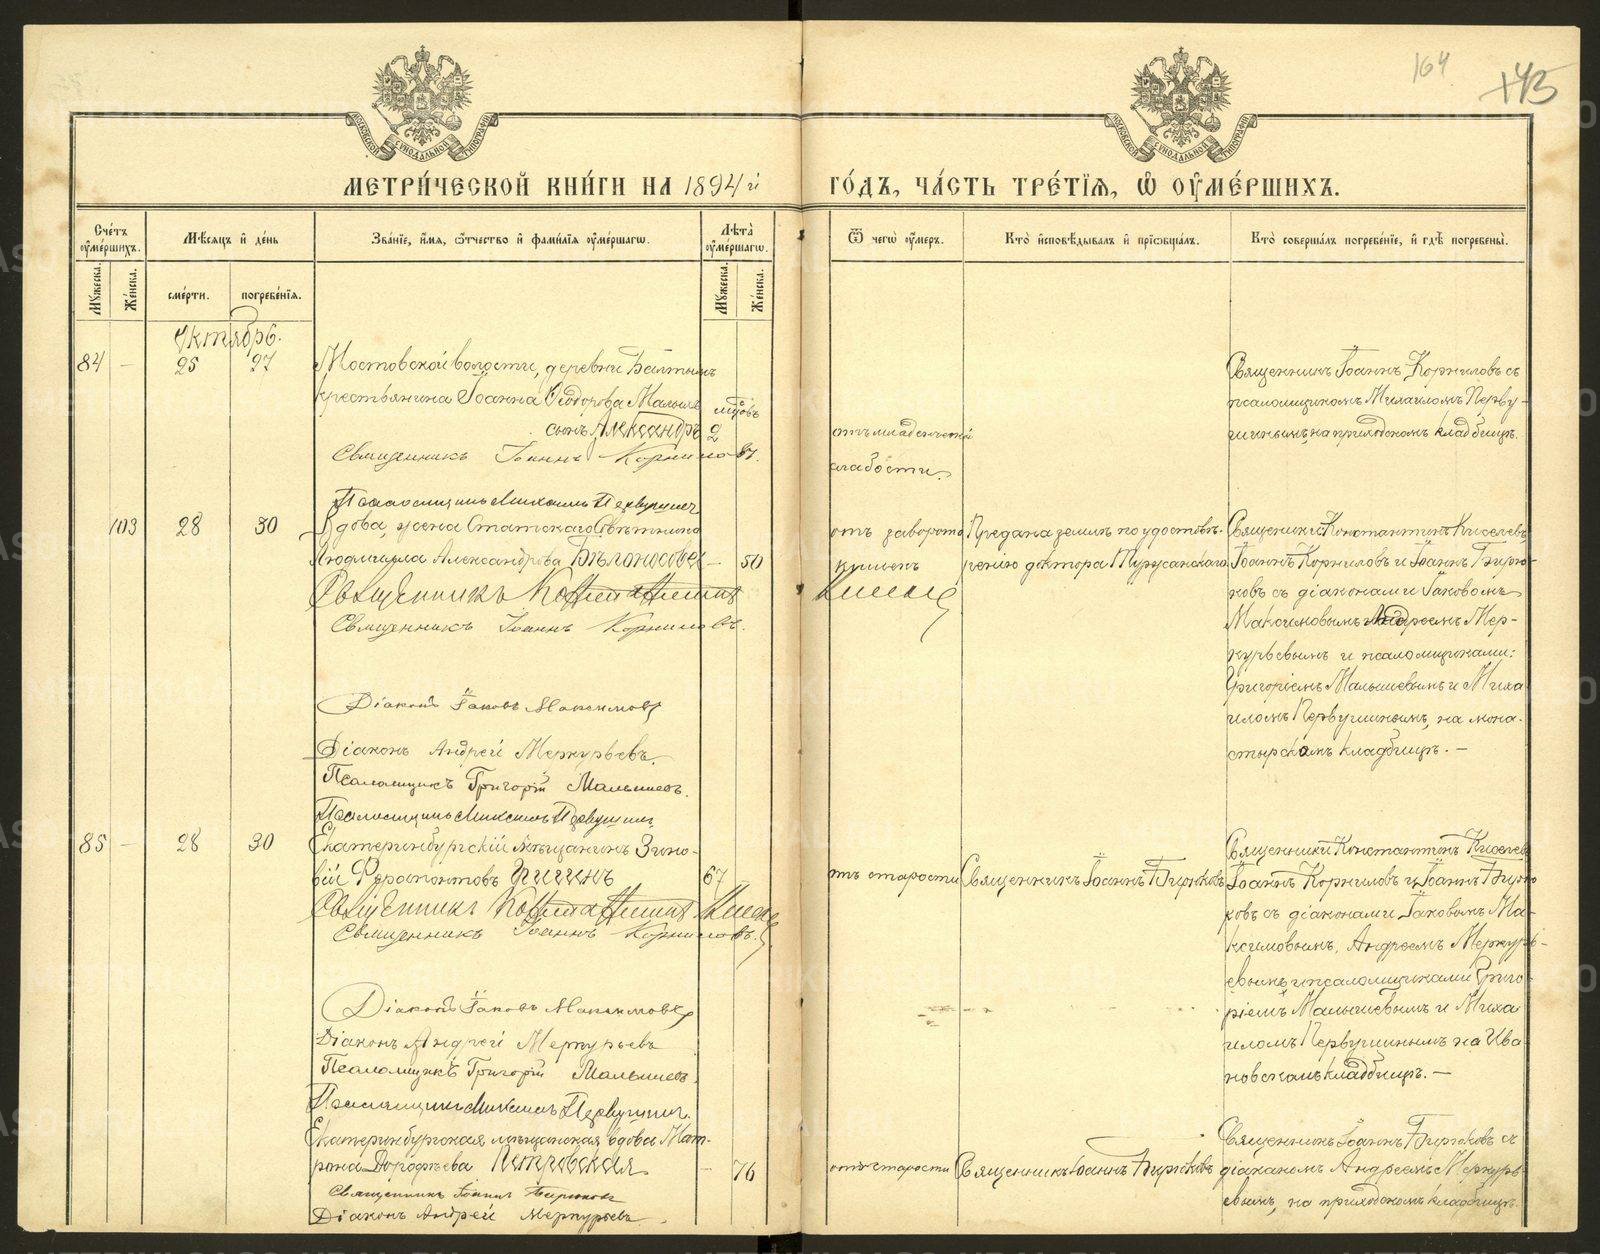 164
143
МОСКОВСКОЙ СѴНОДАЛЬНОЙ ТИПОГРАФІИ
МОСКОВСКОЙ СѴНОДАЛЬНОЙ ТИПОГРАФІИ
МЕТРИ́ЧЕСКОЙ КНИ́ГИ НА 1894 й ГО́ДЪ, ЧА́СТЬ ТРЕ́ТІѦ, Ѡ ОУМЕ́РШИХЪ.
Сче́тъ оуме́ршихъ.
Мѣсѧцъ и де́нь
Зва́нїе, и́мѧ, ѻ́тчество и фами́лїѧ оуме́ршагѡ.
Лѣта̀ оуме́ршагѡ.
Ѿ чегѡ̀ оу́меръ.
Кто̀ исповѣ́дывалъ и прїѡбща́лъ.
Кто̀ соверша́лъ погребе́нїе, и гдѣ̀ погребены̀.
Мꙋ́жеска.
Же́нска.
сме́рти.
погребе́нїѧ.
Мꙋ́жеска.
Же́нска.
Октябрь.
84 — 25 27
Мостовской волости, деревни Балтымъ
крестьянина Іоанна Ѳеодорова Малыхъ
сынъ Александръ
мѣсѧцовъ
2
Священникъ Іоаннъ Корниловъ.
Псаломщикъ Михаилъ Первушинъ
отъ младенческой
слабости.
Священникъ Іоаннъ Корниловъ съ
псаломщикомъ Михаиломъ Перву-
шинымъ, на приходскомъ кладбищѣ.
103 28 30
Вдова, жена Статскаго Совѣтника
Людмила Александрова Бѣлоносова — 50
Священникъ Константинъ Киселевъ
Священникъ Іоаннъ Корниловъ.
Діаконъ Іаковъ Максимовъ
Діаконъ Андрей Меркурьевъ.
Псаломщикъ Григорій Малышевъ.
Псаломщикъ Михаилъ Первушинъ
отъ заворота
кишекъ
Предана землѣ по удостовѣ-
ренію доктора Туржанскаго
Священники Константинъ Киселевъ,
Іоаннъ Корниловъ и Іоаннъ Бирю-
ковъ съ діаконами Іаковомъ
Максимовымъ, Андреемъ Мер-
курьевымъ и псаломщиками:
Григоріемъ Малышевымъ и Миха-
иломъ Первушинымъ, на мона-
стырскомъ кладбищѣ. —
85 — 28 30
Екатеринбургскій мѣщанинъ Зино-
вій Ферапонтовъ 67
Священникъ Константинъ Киселевъ
Священникъ Іоаннъ Корниловъ.
Діаконъ Іаковъ Максимовъ
Діаконъ Андрей Меркурьевъ
Псаломщикъ Григорій Малышевъ.
Псаломщикъ Михаилъ Первушинъ.
отъ старости
Священникъ Іоаннъ Бирюковъ
Священники Константинъ Киселевъ
Іоаннъ Корниловъ и Іоаннъ Бирю-
ковъ съ діаконами Іаковымъ Ма-
ксимовымъ, Андреемъ Меркурь-
евымъ и псаломщиками Григо-
ріемъ Малышевымъ и Миха-
иломъ Первушинымъ на Ива-
новскомъ кладбищѣ. —
Екатеринбургская мѣщанская вдова Мат-
рона Дорофѣева Петровская — 76
Священникъ Іоаннъ Бирюковъ
Діаконъ Андрей Меркурьевъ.
отъ старости
Священникъ Іоаннъ Бирюковъ
Священникъ Іоаннъ Бирюковъ съ
діакономъ Андреемъ Меркурь-
евымъ, на приходскомъ кладбищѣ.